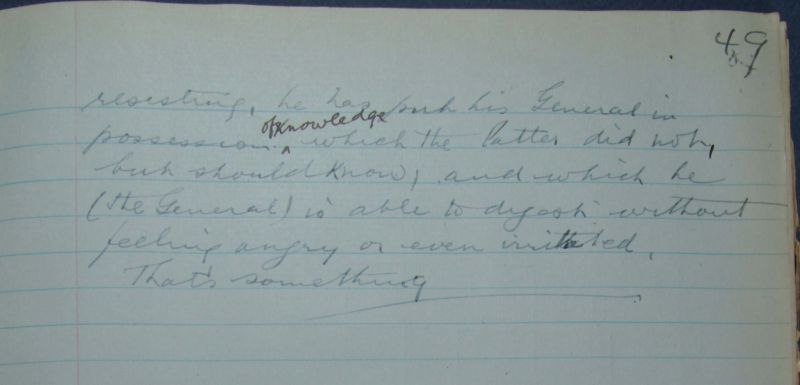 49
resisting, he has put his General in
possession ^ of knowledge which the latter did not,
but should know, and which he
(the General) is able to digest without
feeling angry or even irritated.
That's something